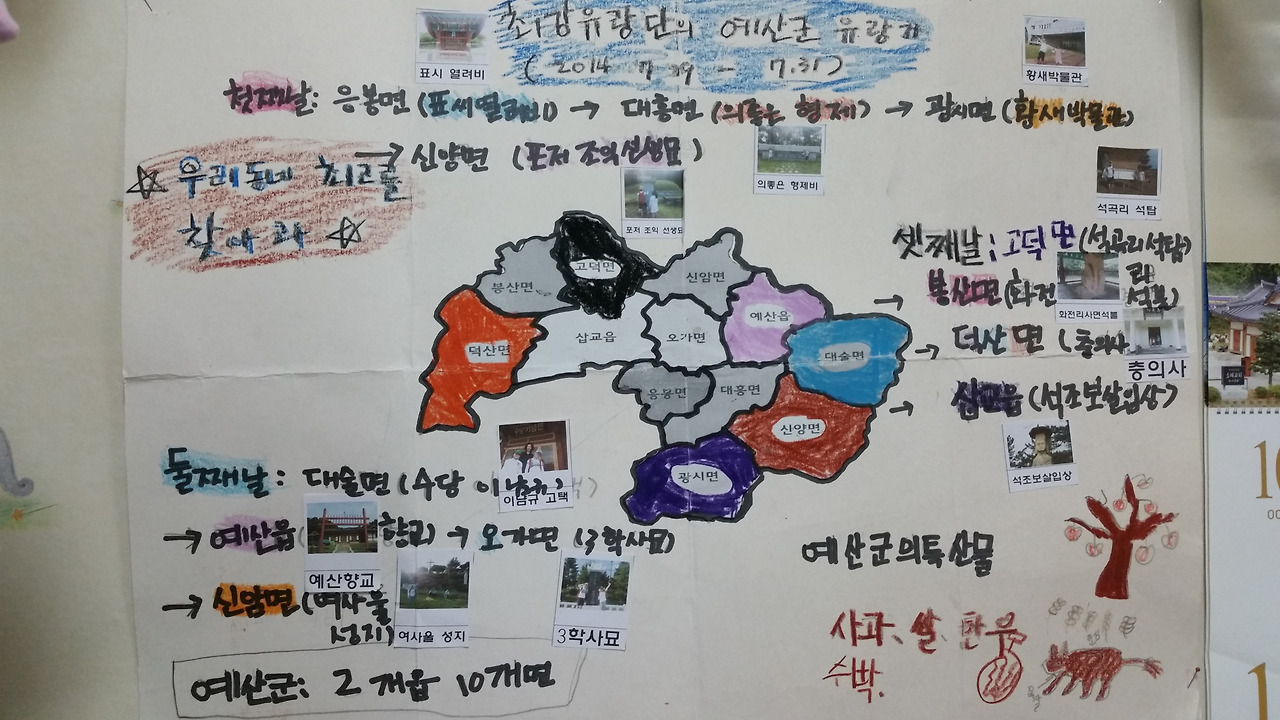 최강유랑단의 예산군 유랑기
(2014 7.29 - 7.31)
표시 열려비
황새박물관
첫째날: 응봉면 (표세열려비) → 대흥면 (의좋은 형제) → 광시면 (황새박물관)
→ 신양면 (포저 조익선생묘)
의좋은 형제비
포저 조익 선생묘
석곡리 석탑
☆ 우리동네 최고를
찾아라 ☆
셋째날: 고덕면 (석곡리석탑)
→ 봉산면 (화전리
석불)
화전리사면석불
→ 덕산면 (충의사
충의사
→ 삽교읍 (석조보살입상)
석조보살입상
고덕면
봉산면
신암면
예산읍
덕산면
삽교읍
오가면
대술면
응봉면
대흥면
신양면
광시면
둘째날: 대술면 (수당 이남규
이남규 고택
→ 예산읍 향교) → 오가면 (3학사묘)
예산향교
→ 신암면 (여사울
성지)
여사울 성지
3학사묘
예산군: 2개읍 10개면
예산군의특산물
사과, 쌀, 한우
수박.